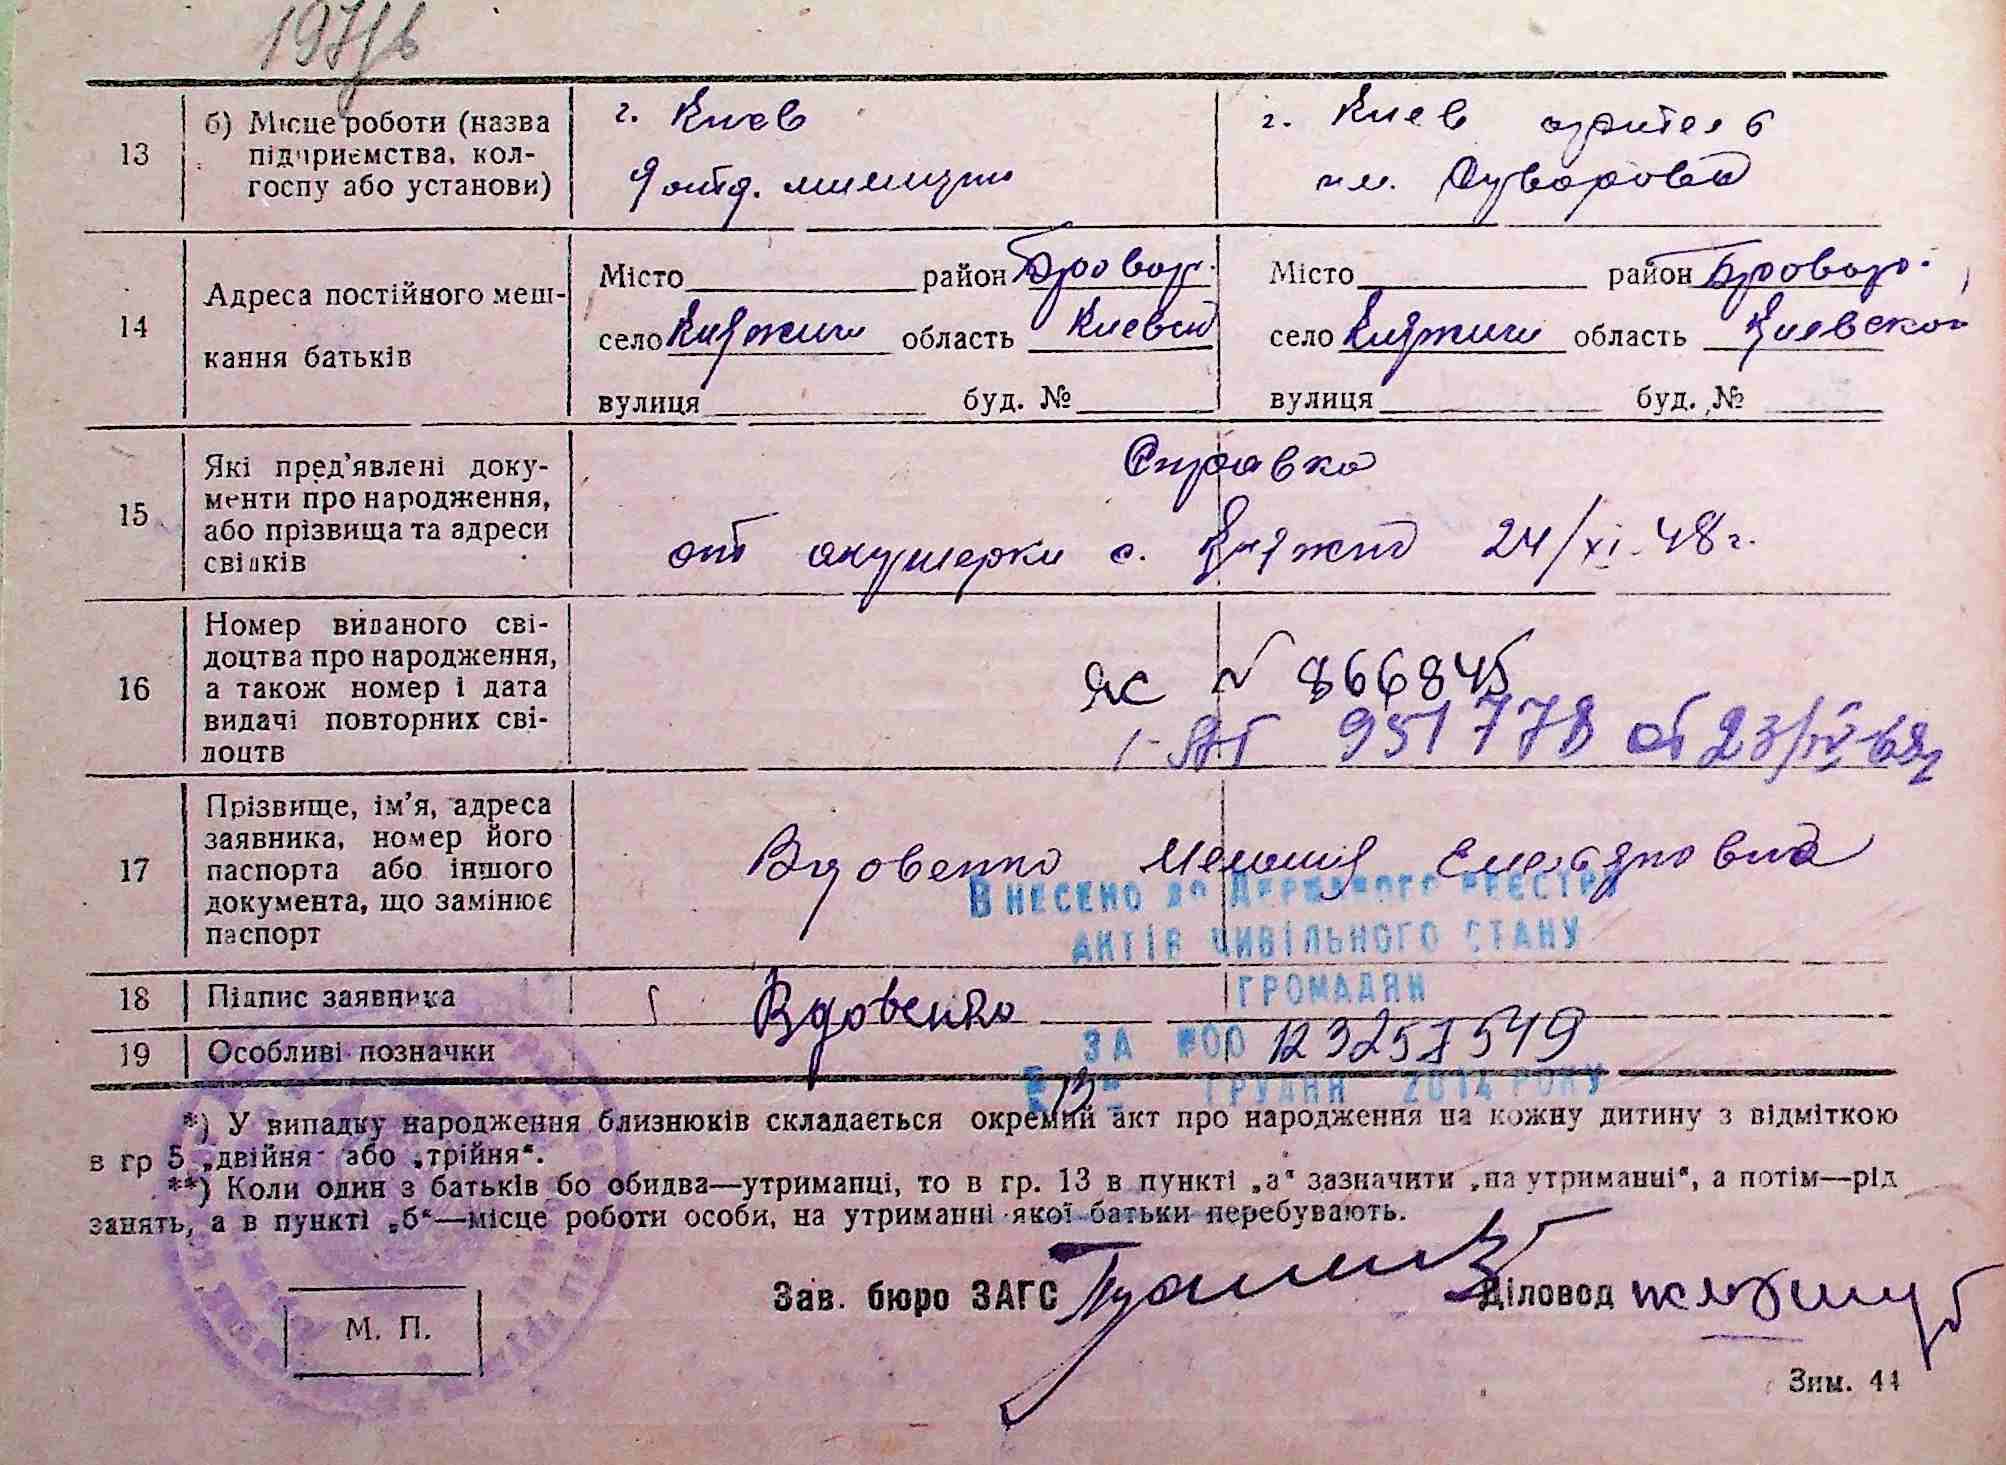 13
б) Місце роботи (назва
підприємства, кол-
госпу або установи)
г. Киев
9 отд. милиции
г. Киев артель
им. Суворова
14
Адреса постійного меш-
кання батьків
Місто район Бровар.
село Княжичи область Киевской
вулиця буд. №
Місто район Бровар.
село Княжичи область Киевской
вулиця буд. №
15
Які пред'явлені доку-
менти про народження,
або прізвища та адреси
свідків
Справка
от акушерки с. 24/XI-48 г.
16
Номер виданого сві-
доцтва про народження,
а також номер і дата
видачі повторних сві-
доцтв
ЯС № 866845
951778 от 23/IV-
17
Прізвище, ім'я, адреса
заявника, номер його
паспорта або іншого
документа, що замінює
паспорт
Вдовенко Мелания Емельяновна
Внесено до Державного реєстру
актів цивільного стану
громадян
18
Підпис заявника
Вдовенко
19
Особливі позначки
за №00
12 грудня 2014 року
*) У випадку народження близнюків складається окремий акт про народження на кожну дитину з відміткою
в гр 5 „двійня" або „трійня".
**) Коли один з батьків бо обидва—утриманці, то в гр. 13 в пункті „а" зазначити „на утриманні", а потім—рід
занять, а в пункті „б"—місце роботи особи, на утриманні якої батьки перебувають.
Зав. бюро ЗАГС
Діловод
М. П.
Зим. 44